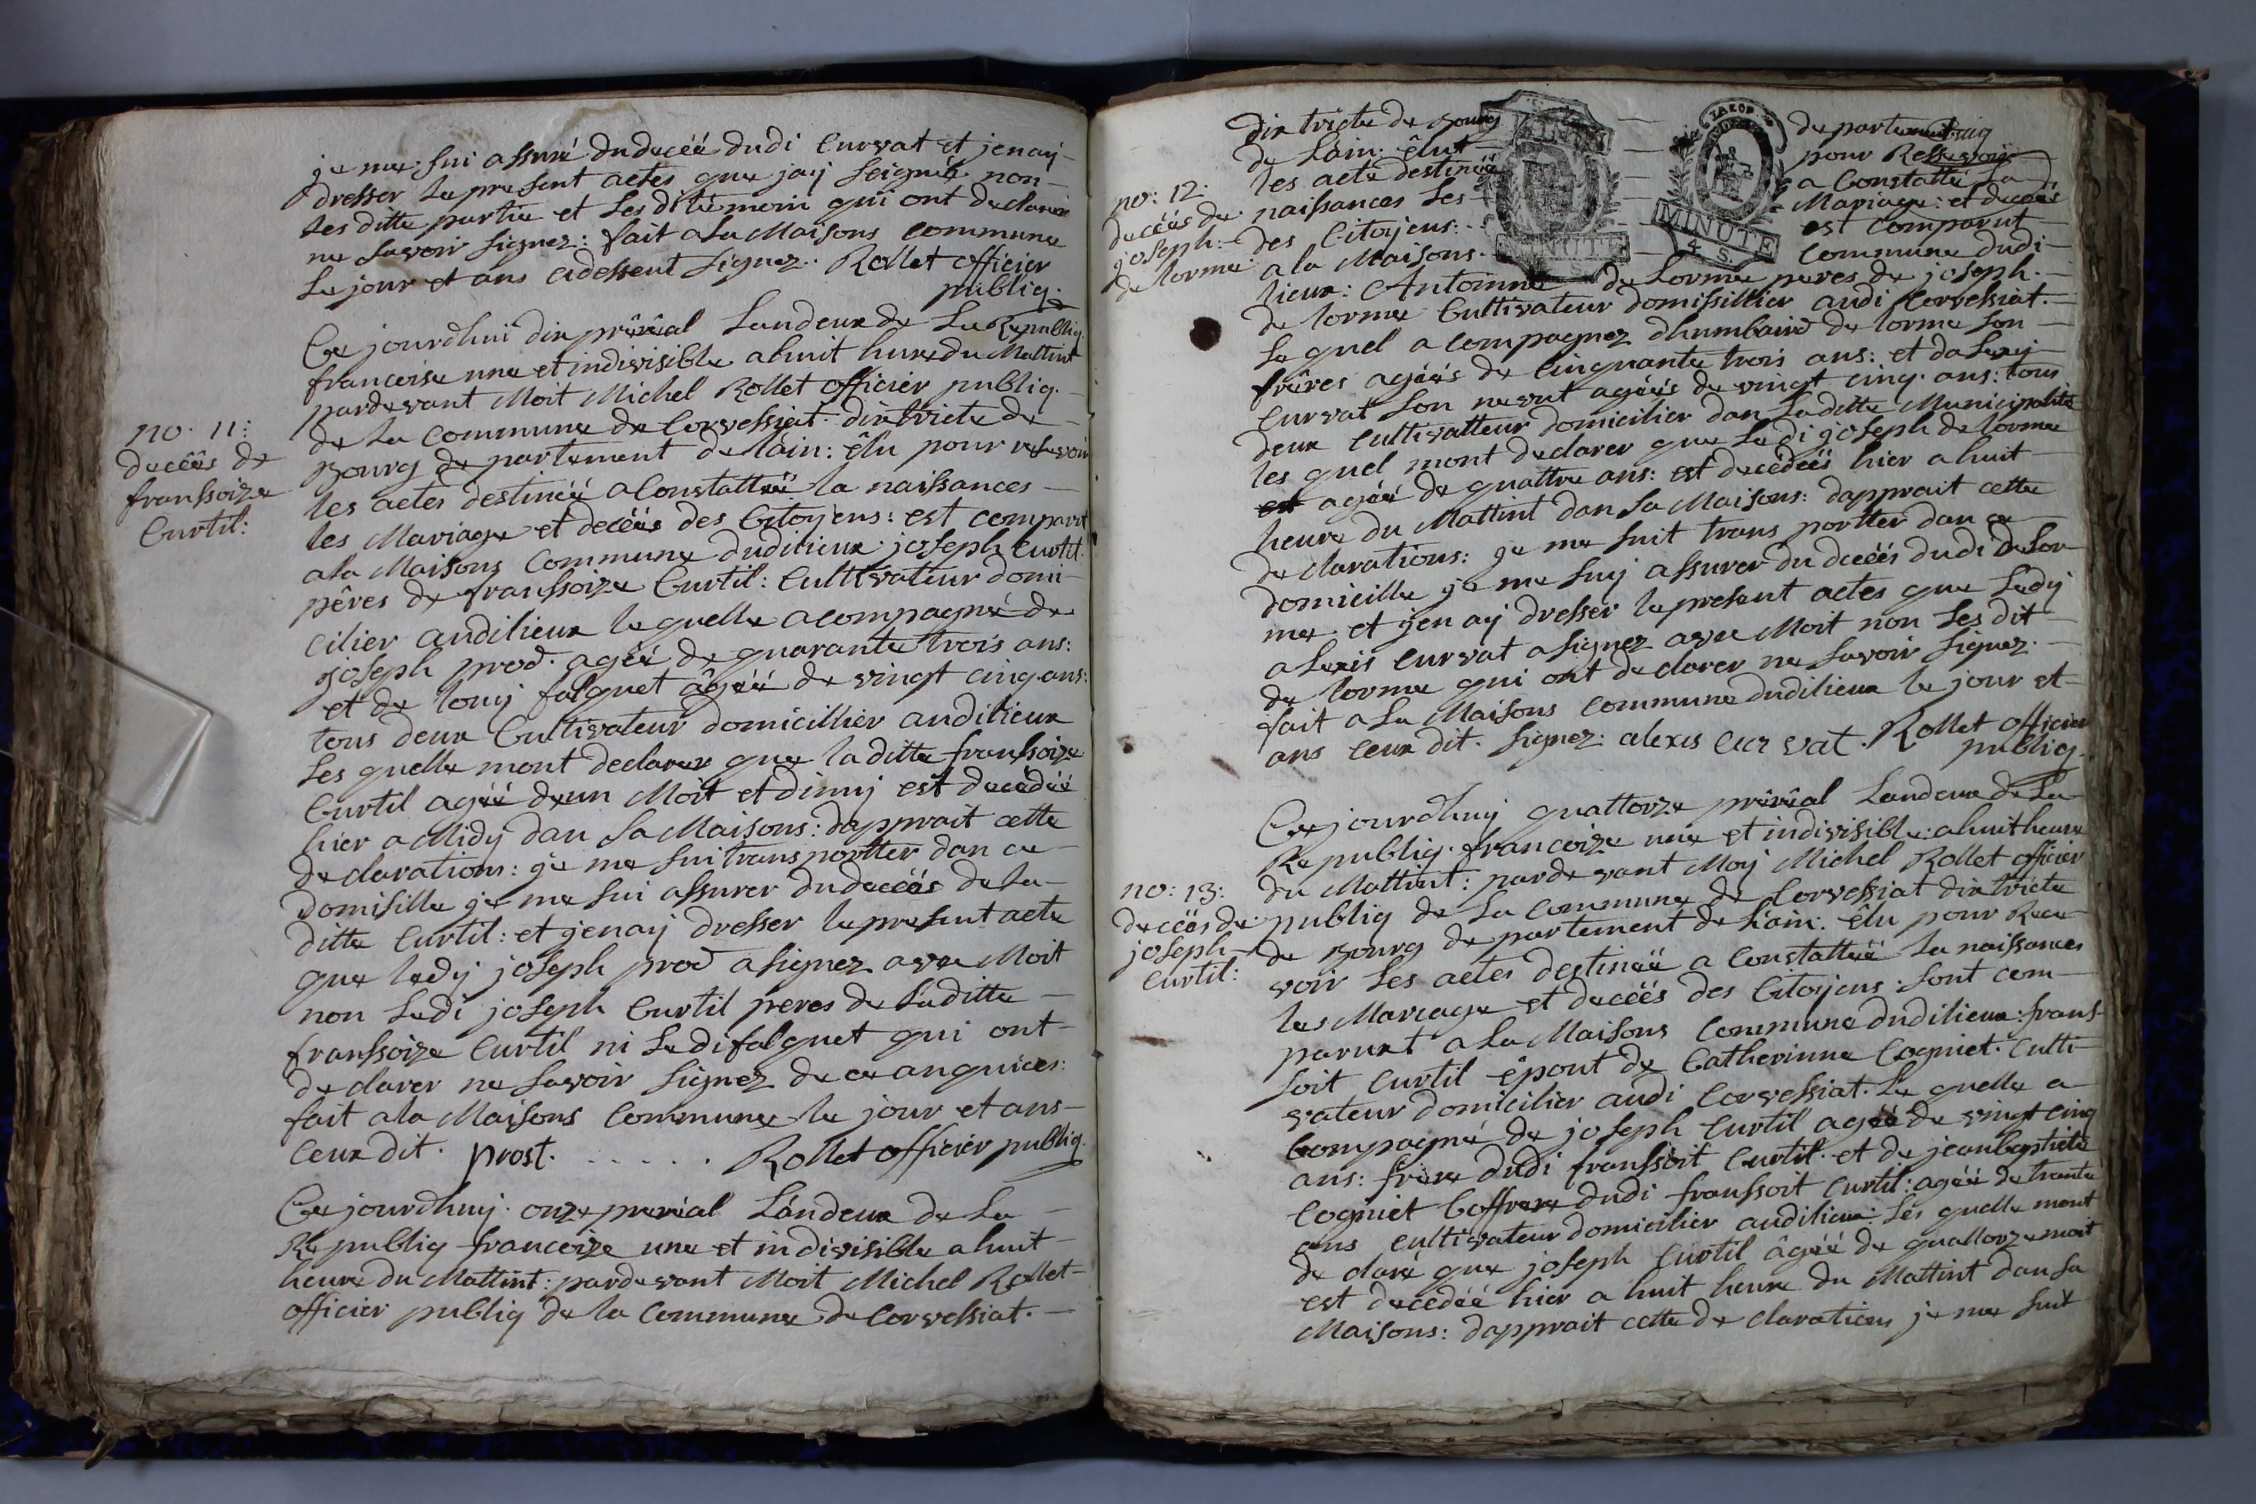 je me sui assuré dudecéé dudi Curvat et jenay
dresser le present actes que jay seignéé non
les ditte partie et les di témoin qui ont declarér
ne savoir signez: fait ala Maisons Commune
Le jour et ans cidessent signez. Rollet officier
publiq.
Cejourdhui dix prêrêal Landeux de La Republiq
francoise une et indivisible ahuit hure du Mattint
pardevant Moit Michel Rollet officier publiq.
de la Commune de Corvessiat dixtricte de
Bourg departement delain: êlu pour resevoir
les actes destinéé aConstattéé la naissances
les Mariage et decéés des Citoyens: est comparut
ala Maisons Commune dudilieux joseph Curtil
no. 11:
decêês de
franssoize
Curtil:
pêres de franssoize Curtil: Cultivateur domi-
cilier audilieux lequelle acompagné de
joseph prod. agéé de quarante trois ans:
et de louij falquet âgéé de vingt cinq ans:
tous deux Cultivateur domicillier audilieux
Les quelle mont declarer que laditte franssoize
Curtil agéé dun Moit et dimij est decédéé
hier a Midÿ dan sa Maisons: dapprait cette
declarations: je me sui transportter dan ce
domisille je me sui assurer dudecéés de la
ditte Curtil: et jenaij dresser le present acte
que ledij joseph prod asignez avec Moit
non Ledi joseph Curtil peres de Laditte
franssoize Curtil ni Ledi falquet qui ont
declarer ne savoir signez de ce anquices:
fait ala Maisons Commune le jour et ans
Ceux dit. prost. . . . . . Rollet officier publiq.
Cejourdhuij onze preréal Landeux de La
Republiq francoize une et indivisible ahuit
heure du Mattint: pardevant Moit Michel Rollet
officier publiq de la Commune de Corvessiat.
dixtricte de Bourg departement
de Lain: élut pour Ressevoir
les acte destinéé a Constatté La
naissances Les Mariage: et decéés
des Citoyens: est Comparut
a la Maisons Commune dudi
MINUTE
4 S.
no: 12:
decéés de
joseph
de lorme
lieux: Antoinne de Lorme peres de joseph
de lorme Cultivateur domissillier audi Corvessiat.
Le quel acompagnez dhumbaird de lorme son
frêres agéés de Cinquante trois ans: et dalexij
Curvat son nevut agéés de vingt cinq. ans: tous
deux cultivatteur domicilier dan laditte Municipalité
les quel mont declarer que Ledi joseph de lorme
agéé de quattre ans: est decédéés hier ahuit
heure du Mattint dan sa Maisons: dapprait cette
declarations: je me suit trans portter dan ce
domicille je me suij assurer du decéés dudi Delor
me. et jen aij dresser le present actes que Ledij
alexis curvat asignez avec Moit non Les dit
de lorme qui ont declarer ne savoir signez.
fait ala Maisons Commune dudilieux le jour et
ans Ceux dit. signez. alexis curvat. Rollet officier
publiq.
Cejourdhuij quattorze prêrêal Landeux de La
Republiq. francoize une et indivisible: ahuit heure
du Mattint: pardevant Moij Michel Rollet officier
publiq de La Commune de Corvessiat dixtricte
de Bourg departement de Lain: élu pour Rece
voir Les actes destinéé a Constattéé La naissances
no: 13:
decéés de
joseph
Curtil:
les Mariage et decéés des Citoyens: sont com-
parurt ala Maisons Commune dudilieux: frans-
soit Curtil êpout de Catherinne Cogniet. Culti-
vateur domicilier audi Corvessiat. Le quelle a
Compagné de joseph Curtil agéé de vingt cinq
ans: frere dudi franssoit Curtil. et de jeanbaptiste
Cogniet boffrere dudi franssoit Curtil: agéé de trante
ans cultivateur domicilier audilieux: Lés quelle mont
declaré que joseph Curtil âgéé de quattorze moit
est decedéé hier a huit heure du Mattint dan sa
Maisons: dapprait cette declarations je me suit